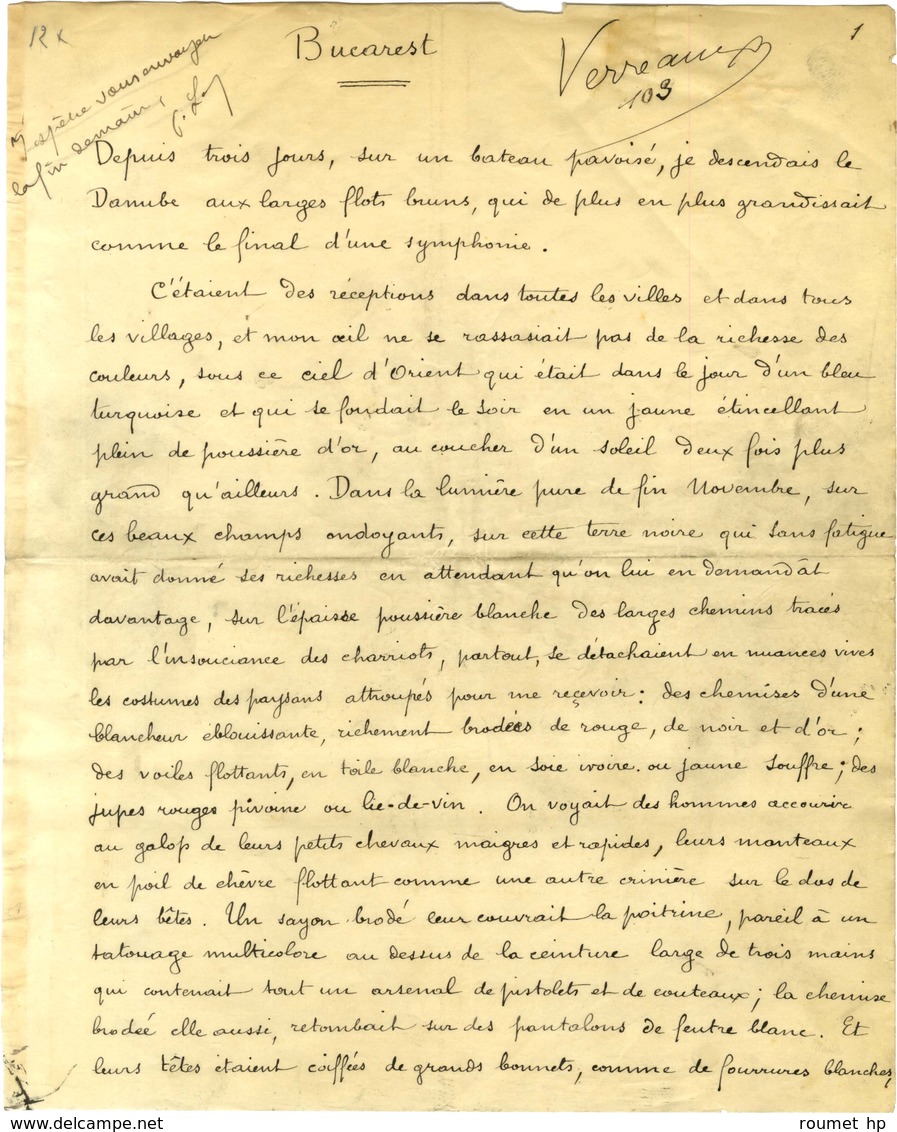 12 x
Bucarest
Verreaux
103
1
J'espère vous envoyer
la fin demain,
P. L.
Depuis trois jours, sur un bateau pavoisé, je descendais le
Danube aux larges flots bruns, qui de plus en plus grandissait
comme le final d'une symphonie.
C'étaient des réceptions dans toutes les villes et dans tous
les villages, et mon œil ne se rassasiait pas de la richesse des
couleurs, sous ce ciel d'Orient qui était dans le jour d'un bleu
turquoise et qui se fondait le soir en un jaune étincellant
plein de poussière d'or, au coucher d'un soleil deux fois plus
grand qu'ailleurs. Dans la lumière pure de fin Novembre, sur
ces beaux champs ondoyants, sur cette terre noire qui sans fatigue
avait donné ses richesses en attendant qu'on lui en demandât
davantage, sur l'épaisse poussière blanche des larges chemins tracés
par l'insouciance des charriots, partout, se détachaient en nuances vives
les costumes des paysans attroupés pour me reçevoir: des chemises d'une
blancheur éblouissante, richement brodées de rouge, de noir et d'or;
des voiles flottants, en toile blanche, en soie ivoire ou jaune souffre; des
jupes rouges pivoine ou lie-de-vin. On voyait des hommes accourir
au galop de leurs petits chevaux maigres et rapides, leurs manteaux
en poil de chèvre flottant comme une autre crinière sur le dos de
leurs bêtes. Un sayon brodé leur couvrait la poitrine, pareil à un
tatouage multicolore au dessus de la ceinture large de trois mains
qui contenait tout un arsenal de pistolets et de couteaux; la chemise
brodée elle aussi, retombait sur des pantalons de feutre blanc. Et
leurs têtes étaient coiffées de grands bonnets, comme de fourrures blanches,
roumet hp